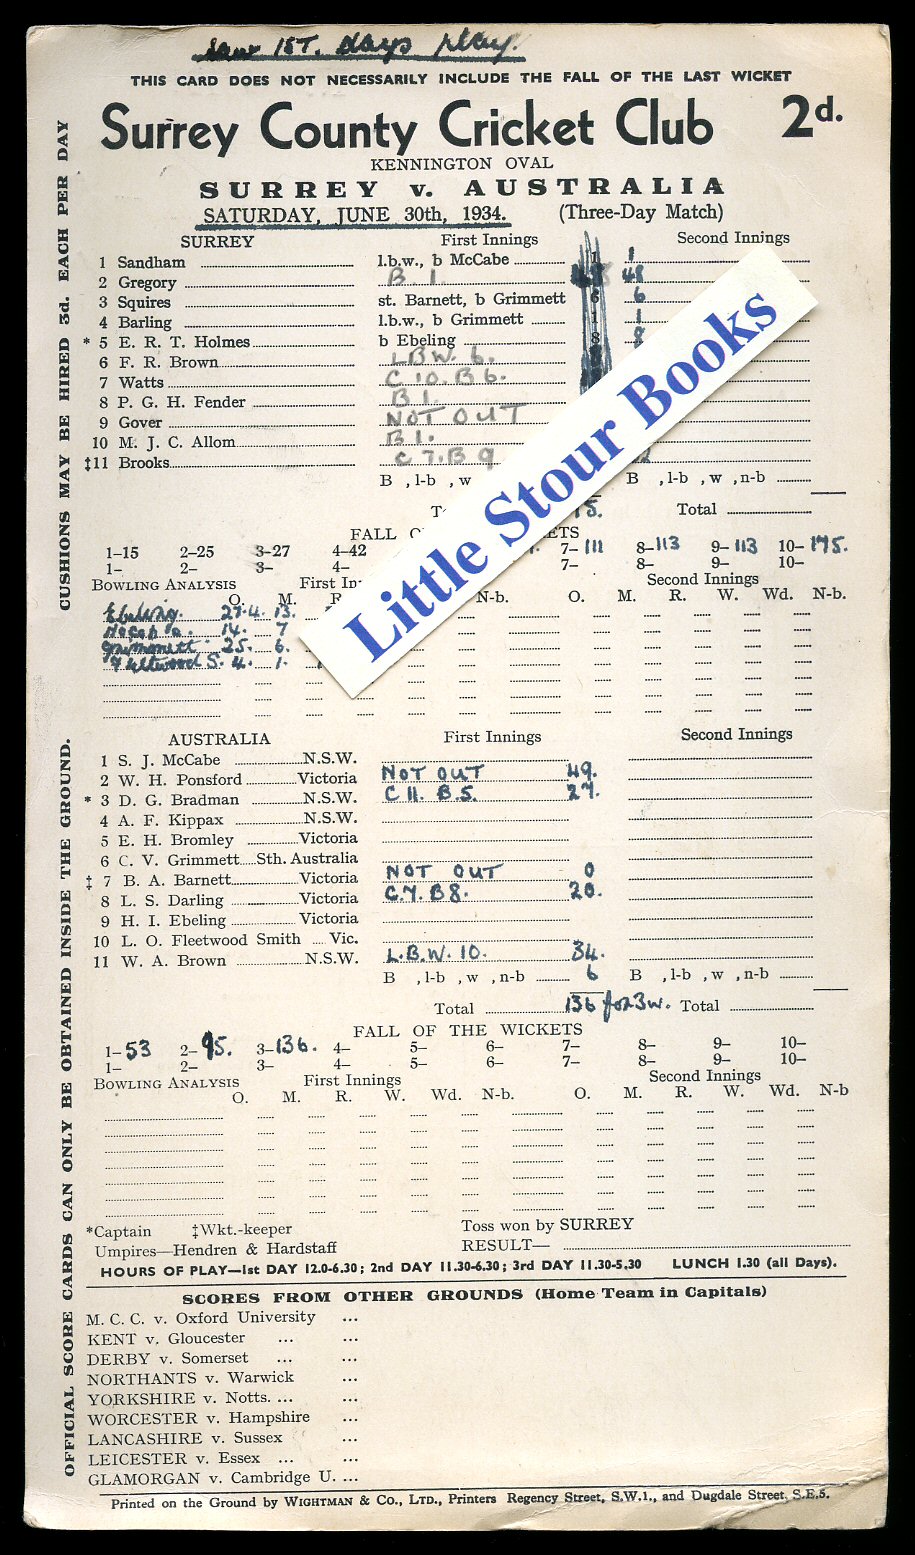 Saw 1ST. days play.
THIS CARD DOES NOT NECESSARILY INCLUDE THE FALL OF THE LAST WICKET
Surrey County Cricket Club 2d.
KENNINGTON OVAL
SURREY v. AUSTRALIA
SATURDAY, JUNE 30th, 1934. (Three-Day Match)
SURREY First Innings Second Innings
1 Sandham l.b.w., b McCabe 1 1
2 Gregory B. 1. 48 48
3 Squires st. Barnett, b Grimmett 6 6
4 Barling l.b.w., b Grimmett 1 1
* 5 E. R. T. Holmes b Ebeling 8 8
6 F. R. Brown LBW. 6.
7 Watts C 10. B 6.
8 P. G. H. Fender B 1.
9 Gover NOT OUT
10 M. J. C. Allom B 1.
‡11 Brooks C 7. B 9
B , l-b , w B , l-b , w , n-b
Total
FALL
1-15 2-25 3-27 4-42 7-111 8-113 9-113 10-175.
1- 2- 3- 4- 7- 8- 9- 10-
BOWLING ANALYSIS Second Innings
O. M. N-b. O. M. R. W. Wd. N-b.
Ebeling. 27.4. 13.
McCabe. 14. 7
Grimmett 25. 6.
Fleetwood S. 4. 1.
Little Stour Books
AUSTRALIA First Innings Second Innings
1 S. J. McCabe N.S.W.
2 W. H. Ponsford Victoria NOT OUT 49.
* 3 D. G. Bradman N.S.W. C 11. B.5. 27.
4 A. F. Kippax N.S.W.
5 E. H. Bromley Victoria
6 C. V. Grimmett Sth. Australia
‡ 7 B. A. Barnett Victoria NOT OUT 0
8 L. S. Darling Victoria C.7. B 8. 20.
9 H. I. Ebeling Victoria
10 L. O. Fleetwood Smith Vic.
11 W. A. Brown N.S.W. L.B.W. 10. 34.
B , l-b , w , n-b 6 B , l-b , w , n-b
Total 136 for 3w. Total
FALL OF THE WICKETS
1-53 2-95. 3-136. 4- 5- 6- 7- 8- 9- 10-
1- 2- 3- 4- 5- 6- 7- 8- 9- 10-
BOWLING ANALYSIS First Innings Second Innings
O. M. R. W. Wd. N-b. O. M. R. W. Wd. N-b
*Captain ‡Wkt.-keeper Toss won by SURREY
Umpires—Hendren & Hardstaff RESULT—
HOURS OF PLAY—1st DAY 12.0-6.30; 2nd DAY 11.30-6.30; 3rd DAY 11.30-5.30 LUNCH 1.30 (all Days).
SCORES FROM OTHER GROUNDS (Home Team in Capitals)
M. C. C. v. Oxford University ...
KENT v. Gloucester ... ...
DERBY v. Somerset ... ...
NORTHANTS v. Warwick ...
YORKSHIRE v. Notts. ... ...
WORCESTER v. Hampshire ...
LANCASHIRE v. Sussex ...
LEICESTER v. Essex ... ...
GLAMORGAN v. Cambridge U. ...
Printed on the Ground by WIGHTMAN & Co., LTD., Printers Regency Street, S.W.1., and Dugdale Street, S.E.5.
CUSHIONS MAY BE HIRED 3d. EACH PER DAY
OFFICIAL SCORE CARDS CAN ONLY BE OBTAINED INSIDE THE GROUND.